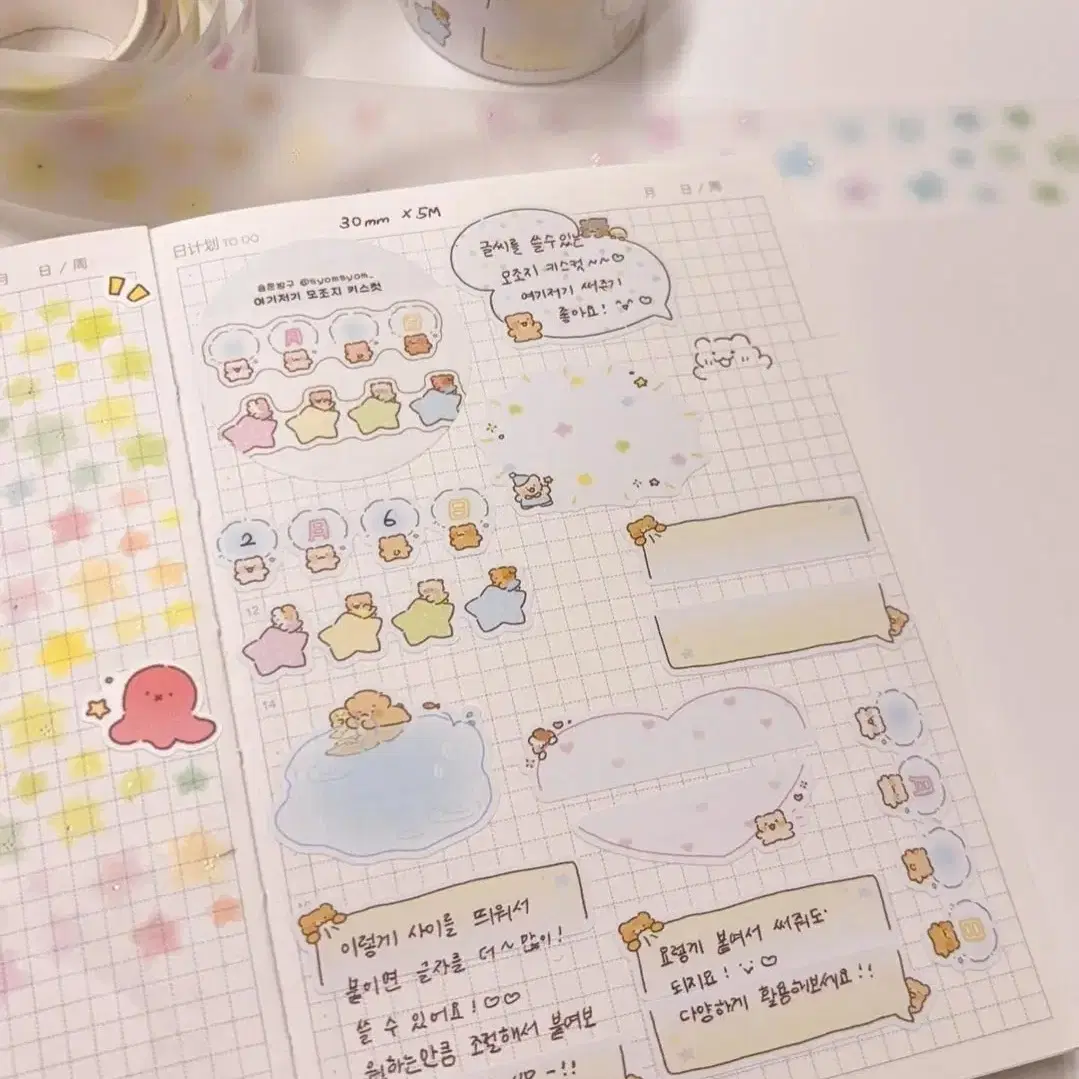 月 日/周
日计划 TO DO
30mm × 5M
月 日/周
슬믄방구 @myomsyom_
여기저기 모조지 키스컷
月
日
글씨를 쓸수있는
모조지 키스컷~~♡
여기저기 써주기
좋아요! ♡
2
月
6
日
12
14
月
日
이렇게 사이를 띄워서
붙이면 글자를 더~많이!
쓸 수 있어요!♡♡
원하는만큼 조절해서 붙여보
요렇게 붙여서 써줘도
되지요! ♡
다양하게 활용해보세요!!